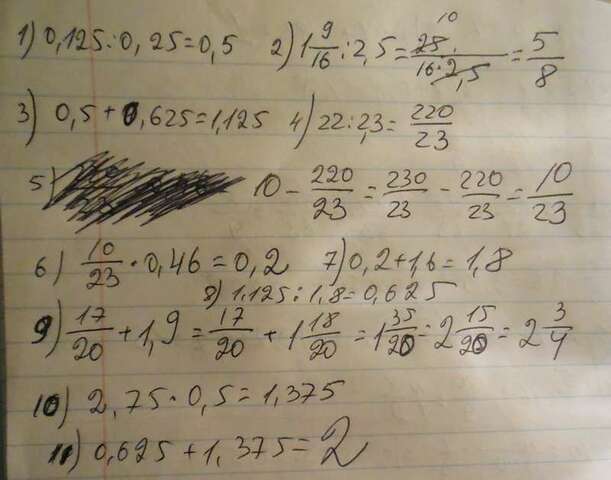 1) 0,125:0,25=0,5 2) 1 9/16 : 2,5 = 25/16·2,5 = 5/8
10
3) 0,5+0,625=1,125 4) 22:2,3= 220/23
5) 10 - 220/23 = 230/23 - 220/23 = 10/23
6) 10/23 · 0,46=0,2 7) 0,2+1,6=1,8
8) 1,125:1,8=0,625
9) 17/20 + 1,9 = 17/20 + 1 18/20 = 1 35/20 = 2 15/20 = 2 3/4
10) 2,75·0,5=1,375
11) 0,625+1,375=2